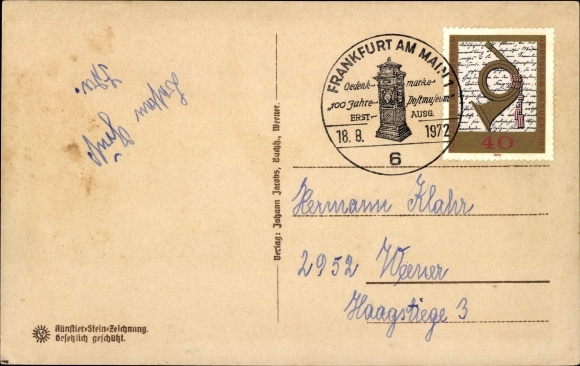 FRANKFURT AM MAIN 1
Gedenk- marke
„100 Jahre Postmuseum"
ERST- AUSG.
18. 8. 1972
6
40
Verlag: Johann Jacobs, Buchh., Weener.
Hermann Klahr
2952 Weener
Haagstiege 3
Künstler-Stein-Zeichnung.
Gesetzlich geschützt.